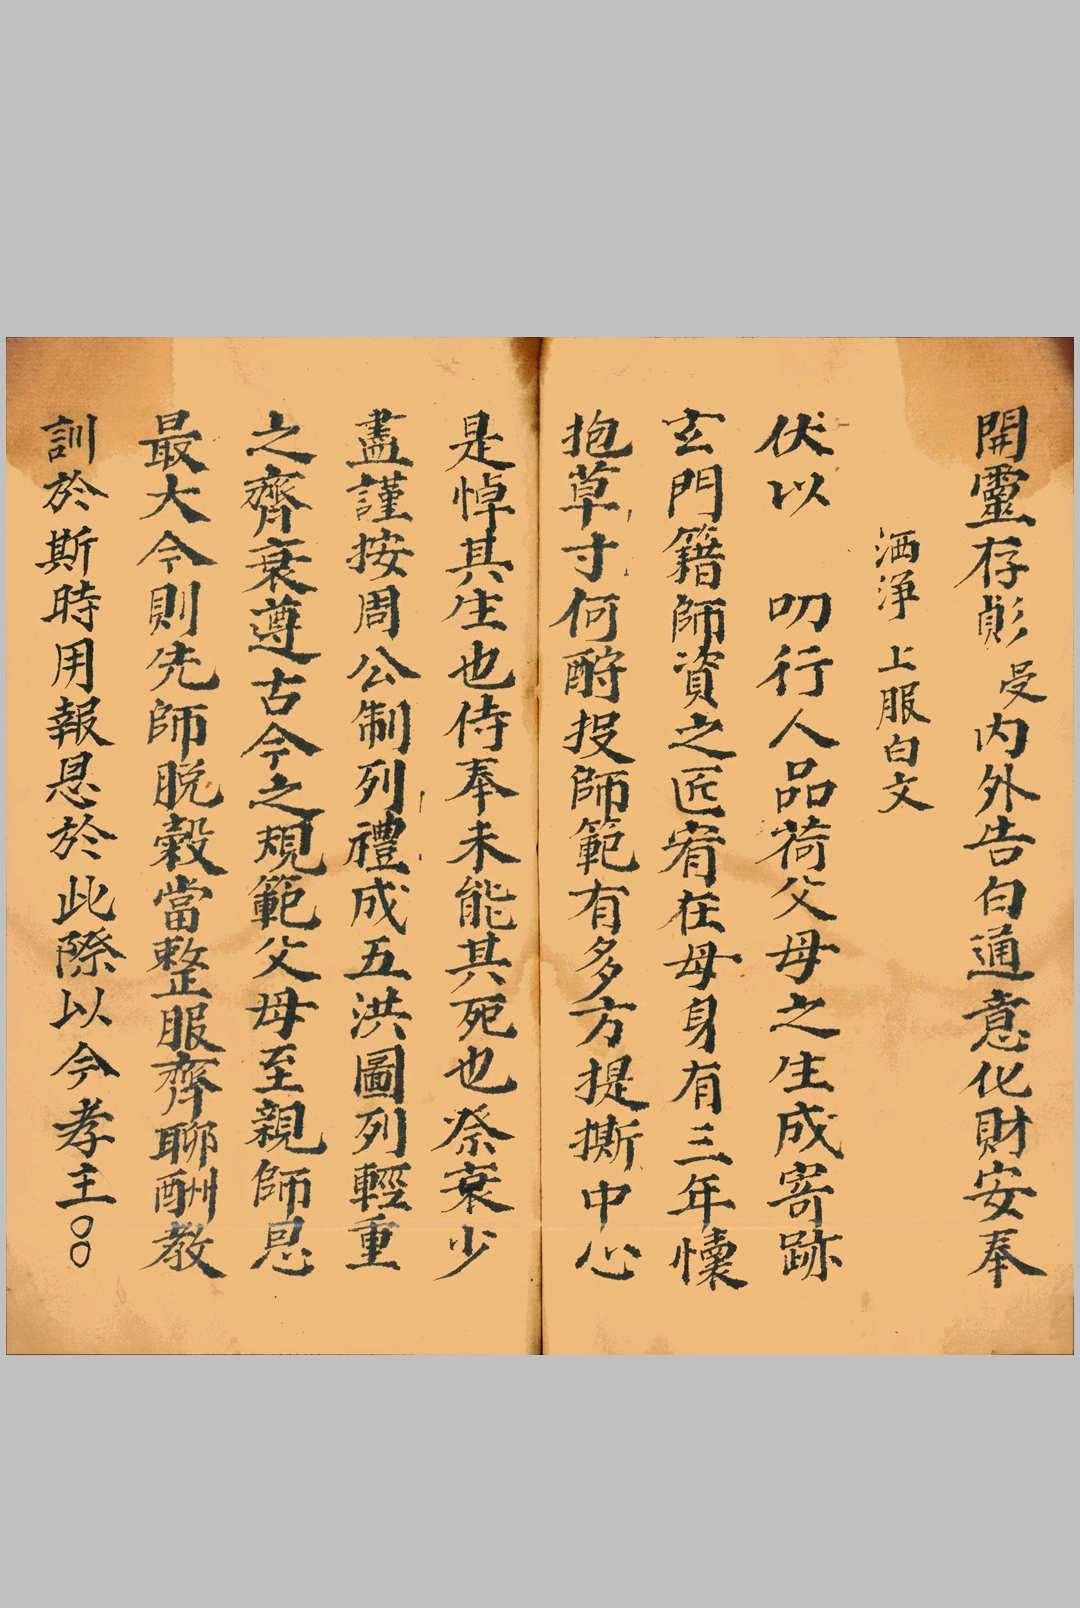 開靈存彪受內外告白通意化財安奉
洒净 上服白文
伏以 叨行人品荷父母之生成寄跡
玄門籍師資之匠宥在母身有三年懷
抱草寸何酧投師範有多方提撕中心
是悼其生也侍奉未能其死也祭衰少
盡謹按周公制列禮成五洪圖列輕重
之齊衰遵古今之規範父母至親師恩
最大今則先師脫穀當整服齊聊酬教
訓於斯時用報恩於此際以今孝主〇〇